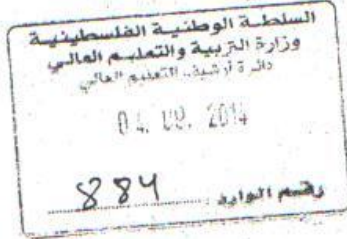 السلطة الوطنية الفلسطينية
وزارة التربية والتعليم العالي
دائرة أرشيف التعليم العالي
04. 08. 2014
رقم الوارد 884